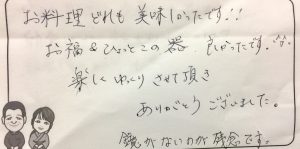 お料理どれも美味しかったです!!
お福&ひょっとこの器 良かったです。^^
楽しくゆっくりさせて頂き
ありがとうございました。
鏡がないのが残念です。